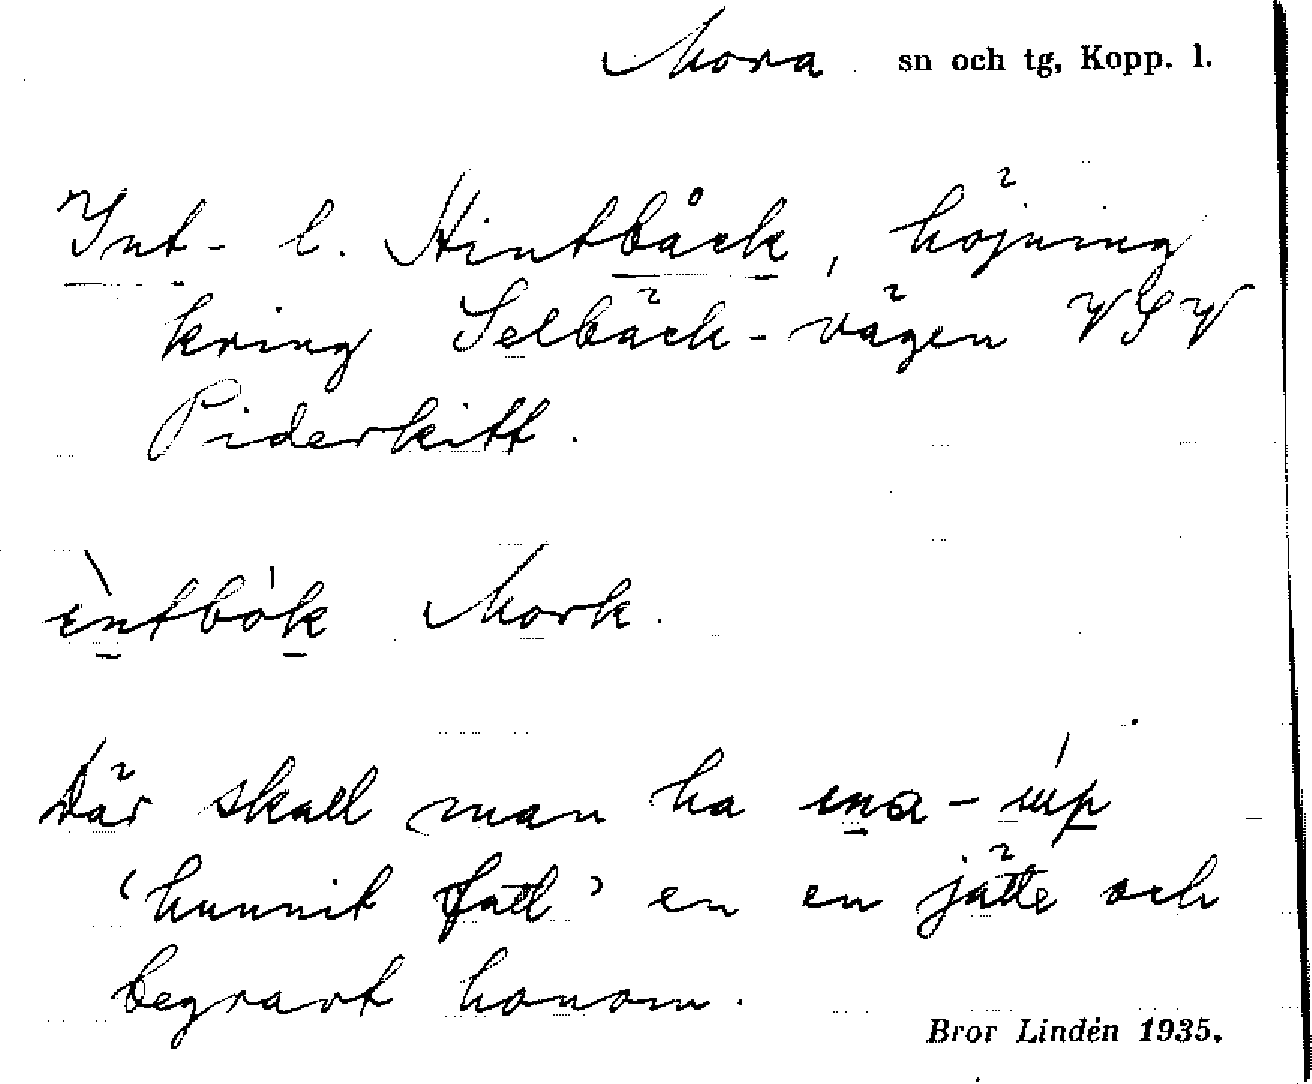 Mora sn och tg, Kopp. l.
Int- l. Hintbåck, höjning
kring Selbäck-vägen VSV
Piderkitt.
èntbók Mork.
Där skall man ha ena-úp
'hunnit fatt' en en jätte och
begravt honom.
Bror Lindén 1935.